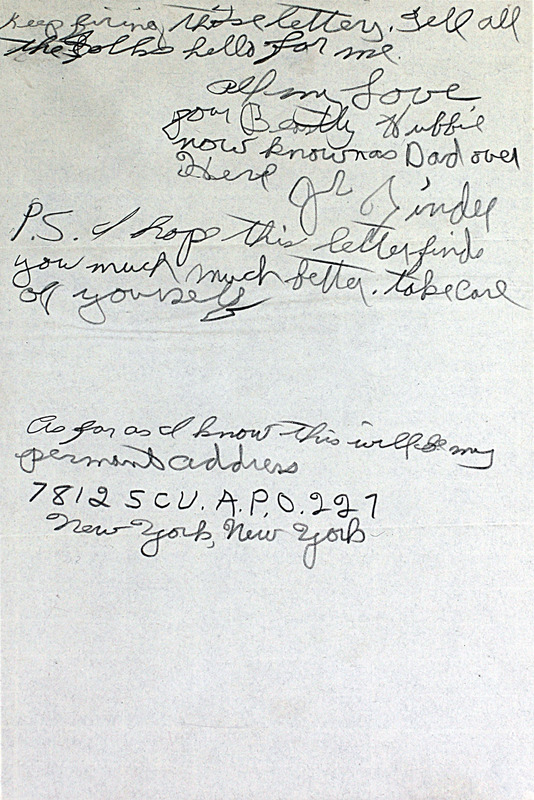 Keep firing those letters. Tell all
the folks hello for me.
All my Love
your Hubbie
now known as Dad over
Here
P.S. I hope this letter finds
you much much better. take care
of yourself
As far as I know this will be my
permant address
7812 SCU. A.P.O. 227
New York, New York